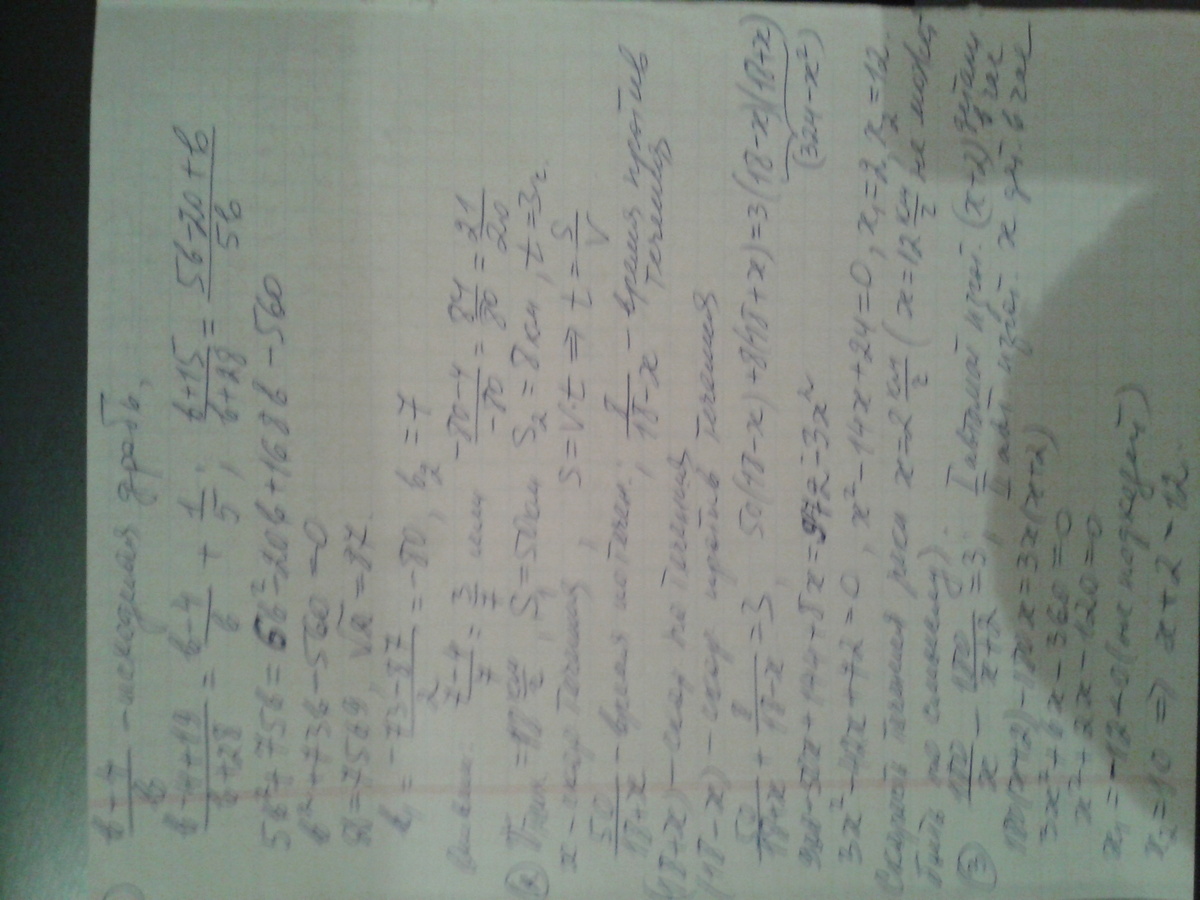 (b-4)/b - исходная дробь,
(b-4+19)/(b+28) = (b-4)/b + 1/5; (b+15)/(b+28) = (5b-20+b)/5b
5b²+75b = 6b²-20b+168b-560
b²+73b-560=0
D=7569, √D=87
b₁ = (-73-87)/2 = -80, b₂=7
(7-4)/7 = 3/7 или (-80-4)/-80 = 84/80 = 21/20
② = 18 км/ч, S₁=50км S₂=8км, t=3ч
x-скор течения, S=V·t ⇒ t = S/V
50/(18+x) - время по течен., 8/(18-x) - время против течения
(18+x)-скор по течения
(18-x)-скор против течения
50/(18+x) + 8/(18-x) = 3, 50(18-x)+8(18+x)=3(18-x)(18+x)
(324-x²)
900-50x+144+8x=972-3x²
3x²-42x+72=0, x²-14x+24=0, x₁=2, x₂=12.
Скорость течения реки x=2 км/ч (x=12 км/ч не может
быть по смыслу).
③ 180/x - 180/(x+2) = 3; I автомат изгот. (x+2) детали в час
II авт изгот. x дет. в час
180(x+2)-180x=3x(x+2)
3x²+6x-360=0
x²+2x-120=0
x₁=-12<0 (не подходит)
x₂=10 ⇒ x+2=12.